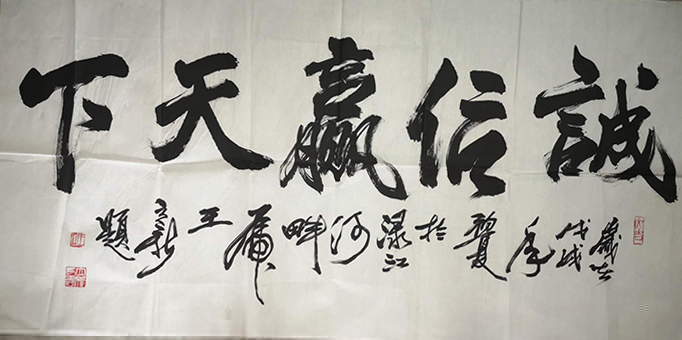 誠信贏天下
歲在戊戌年夏於渌江河畔
王新題